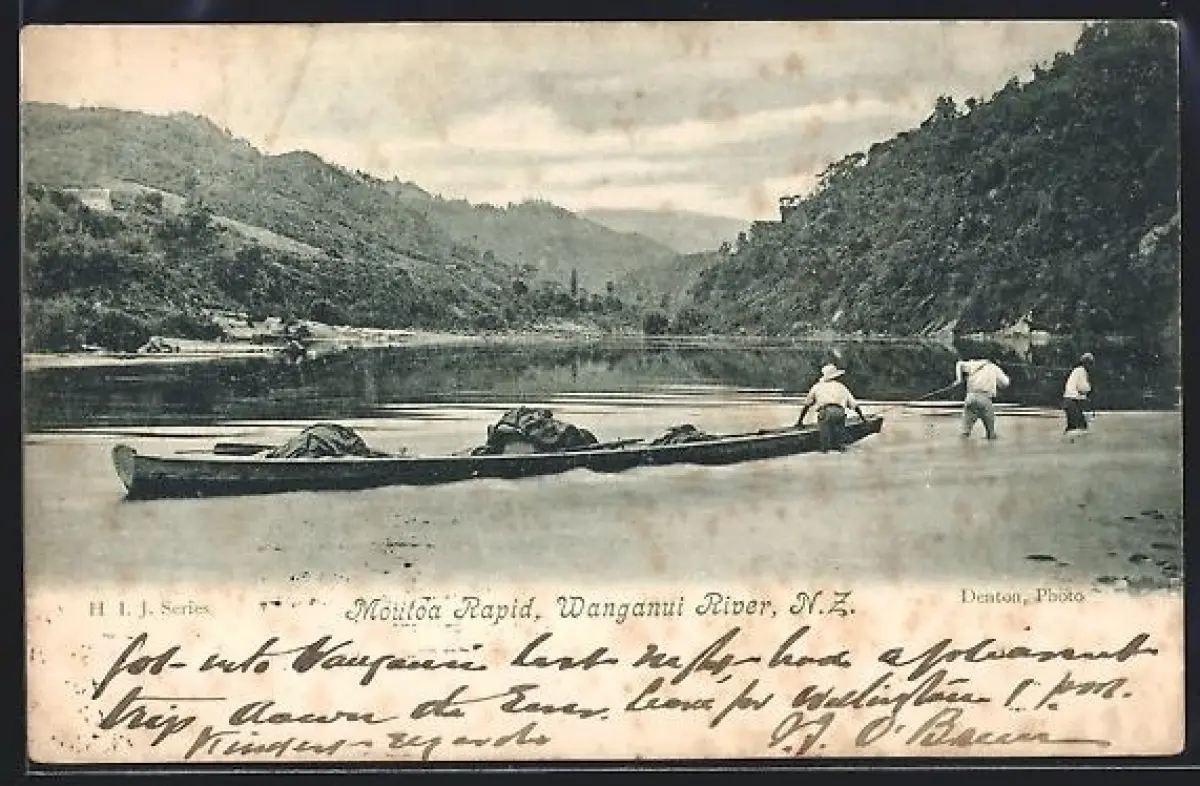 H. I. J. Series.
Moutoa Rapid, Wanganui River, N.Z.
Denton, Photo
Got into Wanganui last night had a pleasant
trip down the river. leave for Wellington 1 p.m.
Kindest regards
O'Brien